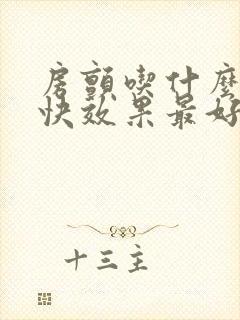 房颤喫什麽
快效果最好
十三主